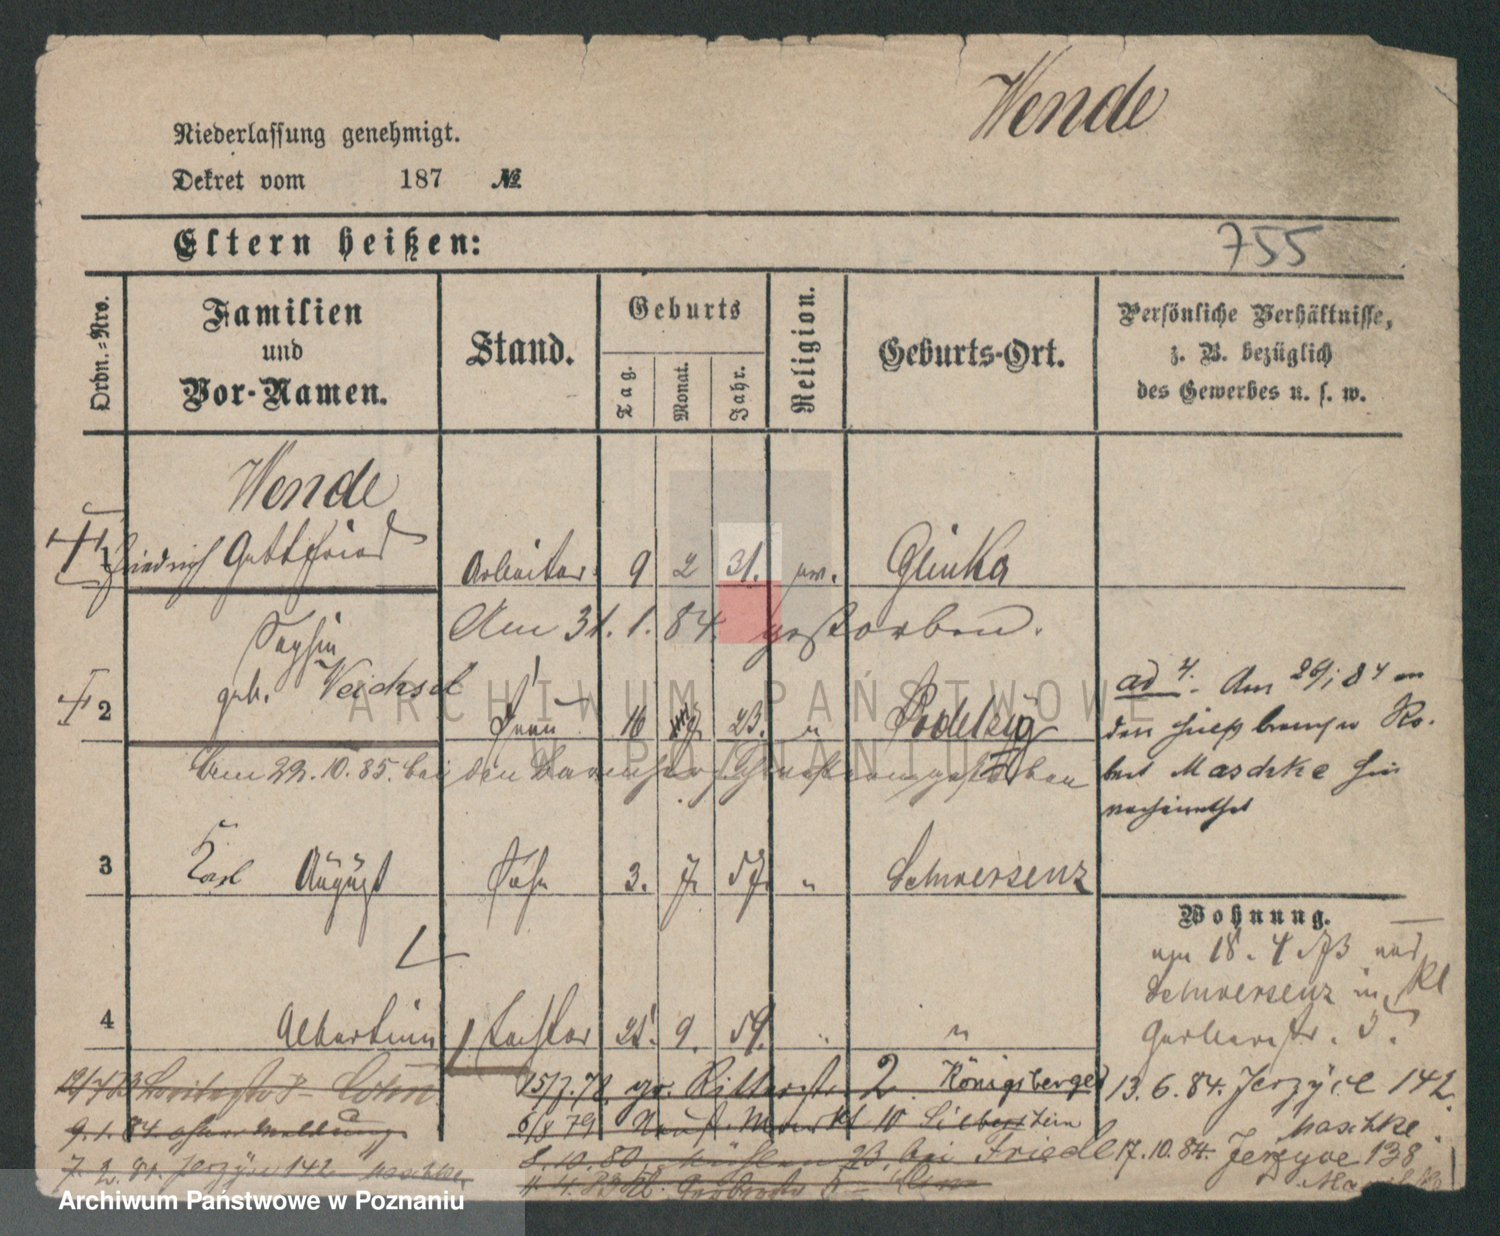 Wende
Niederlassung genehmigt.
Dekret vom 187 №
Eltern heißen:
755
Ordn.=Nro.
Familien
und
Vor-Namen.
Stand.
Geburts
Tag.
Monat.
Jahr.
Religion.
Geburts-Ort.
Persönliche Verhältnisse,
z. B. bezüglich
des Gewerbes u. s. w.
Wende
1 Friedrich Gottfried Arbeiter 9 2 31. ev. Glinka
Am 31. 1. 84. gestorben.
Sophie
geb. Veichsel
2 Frau 16 23. " Podelzig
Am 22. 10. 85. bei den barmherz. Schwestern gestorben
3 Karl August Sohn 3. 7. 57. " Schwersenz
4 Albertine Tochter 21. 9. 59. " "
ad 4. Am 29/i 84 an
den hies. Ro-
bert Maschke hier
verheirathet
Wohnung.
am 18. 4. 73 aus
Schwersenz in Kl
Gerberstr. 5.
13. 6. 84. Jerzyce 142.
Maschke
17. 10. 84. Jerzyce 138
9. 1. 84 ohne Meldung
7. 2. 84. Jerzyce 142 Maschke
15/7. 78. gr. Ritterstr. 2. Königsberger
6/8 79 Neust. Markt 10 Silberstein
8. 10. 80. Mühlen 23. bei Friedl
ARCHIWUM PAŃSTWOWE
W POZNANIU
Archiwum Państwowe w Poznaniu